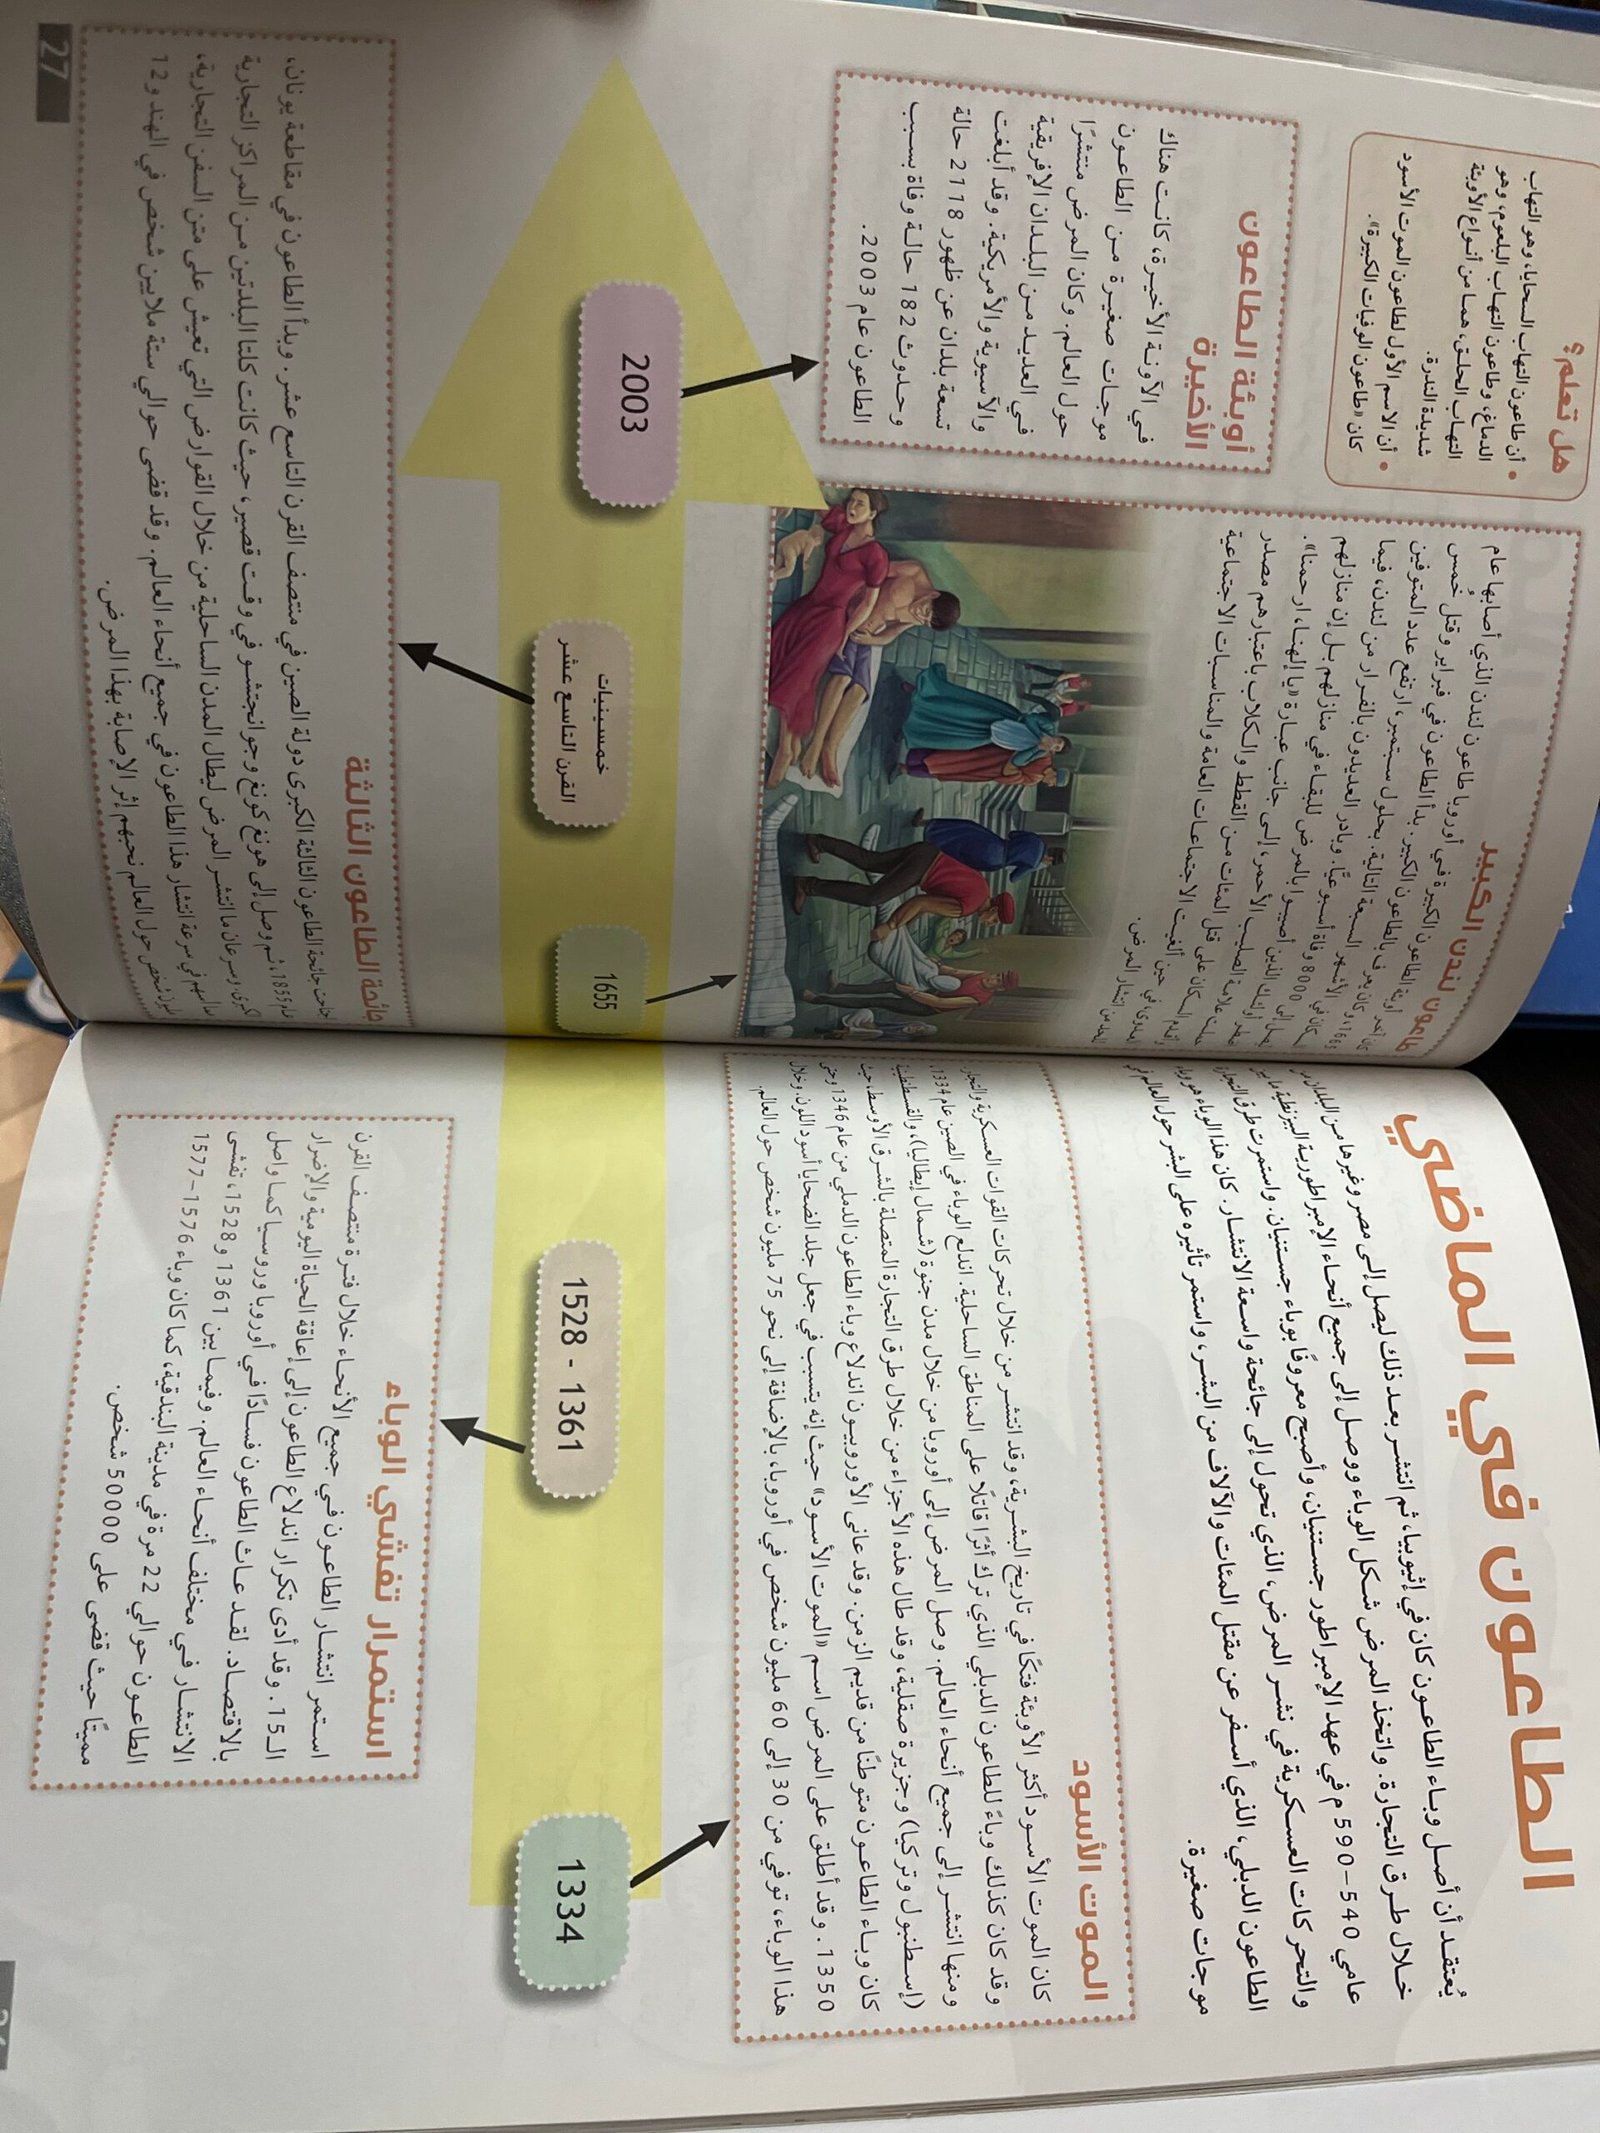 الطاعون في الماضي
يُعتقد أن أصل وباء الطاعون كان في إثيوبيا، ثم انتشر بعد ذلك ليصل إلى مصر وغيرها من البلدان
خلال طرق التجارة. واتخذ المرض شكل الوباء ووصل إلى جميع أنحاء الإمبراطورية البيزنطية
عامي 540–590 م في عهد الإمبراطور جستنيان، وأصبح معروفًا بوباء جستنيان. واستمرت طرق التجارة
والتحركات العسكرية في نشر المرض، الذي تحول إلى جائحة واسعة الانتشار. كان هذا الوباء هو وباء
الطاعون الدبلي، الذي أسفر عن مقتل المئات والآلاف من البشر، واستمر تأثيره على البشر حول العالم في
موجات صغيرة.
الموت الأسود
كان الموت الأسود أكثر الأوبئة فتكًا في تاريخ البشرية، وقد انتشر من خلال تحركات القوات العسكرية والتجار.
وقد كان كذلك وباءً للطاعون الدبلي الذي ترك أثرًا قاتلًا على المناطق الساحلية. اندلع الوباء في الصين عام 1334،
ومنها انتشر إلى جميع أنحاء العالم. وصل المرض إلى أوروبا من خلال مدن جنوة (شمال إيطاليا)، والقسطنطينية
(إسطنبول وتركيا) وجزيرة صقلية، وقد طال هذه الأجزاء من خلال طرق التجارة المتصلة بالشرق الأوسط، حيث
كان وباء الطاعون متوطنًا من قديم الزمن. وقد عانى الأوروبيون اندلاع وباء الطاعون الدملي من عام 1346 وحتى
1350. وقد أطلق على المرض اسم «الموت الأسود» حيث إنه يتسبب في جعل جلد الضحايا أسود اللون. وخلال
هذا الوباء، توفي من 30 إلى 60 مليون شخص في أوروبا، بالإضافة إلى نحو 75 مليون شخص حول العالم.
1334
1361 - 1528
استمرار تفشي الوباء
استمر انتشار الطاعون في جميع الأنحاء خلال فترة منتصف القرن
الـ15. وقد أدى تكرار اندلاع الطاعون إلى إعاقة الحياة اليومية والإضرار
بالاقتصاد. لقد عاث الطاعون فسادًا في أوروبا وروسيا كما واصل
الانتشار في مختلف أنحاء العالم. وفيما بين 1361 و1528، تفشى
الطاعون حوالي 22 مرة في مدينة البندقية، كما كان وباء 1576–1577
مميتًا حيث قضى على 50000 شخص.
طاعون لندن الكبير
كان أحد أوبئة الطاعون الكبيرة في أوروبا طاعون لندن الذي أصابها عام
وكان يعرف بالطاعون الكبير. بدأ الطاعون في فبراير وقتل خُمس
السكان في الأشهر السبعة التالية. بحلول سبتمبر، ارتفع عدد المتوفين
ليصل إلى 8000 وفاة أسبوعيًا. وبادر العديدون بالفرار من لندن، فيما
أولئك الذين أصيبوا بالمرض للبقاء في منازلهم بل إن منازلهم
علامة الصليب الأحمر، إلى جانب عبارة «يا إلهنا، ارحمنا».
وأقدم السكان على قتل المئات من القطط والكلاب باعتبارهم مصدر
العدوى في حين ألغيت الاجتماعات العامة والمناسبات الاجتماعية
للحد من انتشار المرض.
1655
خمسينيات
القرن التاسع عشر
جائحة الطاعون الثالثة
اجتاحت جائحة الطاعون الثالثة الكبرى دولة الصين في منتصف القرن التاسع عشر. وبدأ الطاعون في مقاطعة يونان،
عام 1855، ثم وصل إلى هونغ كونغ وجوانجتشو في وقت قصير، حيث كانت كلتا البلدتين من المراكز التجارية
الكبرى. وسرعان ما انتشر المرض ليطال المدن الساحلية من خلال القوارض التي تعيش على متن السفن التجارية،
مما أسهم في سرعة انتشار هذا الطاعون في جميع أنحاء العالم. وقد قضى حوالي ستة ملايين شخص في الهند و12
مليون شخص حول العالم نحبهم إثر الإصابة بهذا المرض.
هل تعلم؟
• أن طاعون التهاب السحايا، وهو التهاب
الدماغ، وطاعون التهاب البلعوم، وهو
التهاب الحلق، هما من أنواع الأوبئة
شديدة الندرة.
• أن الاسم الأول لطاعون الموت الأسود
كان «طاعون الوفيات الكبيرة».
أوبئة الطاعون
الأخيرة
في الآونة الأخيرة، كانت هناك
موجات صغيرة من الطاعون
حول العالم. وكان المرض منتشرًا
في العديد من البلدان الإفريقية
والآسيوية والأمريكية. وقد أبلغت
تسعة بلدان عن ظهور 2118 حالة
وحدوث 182 حالة وفاة بسبب
الطاعون عام 2003.
2003
27